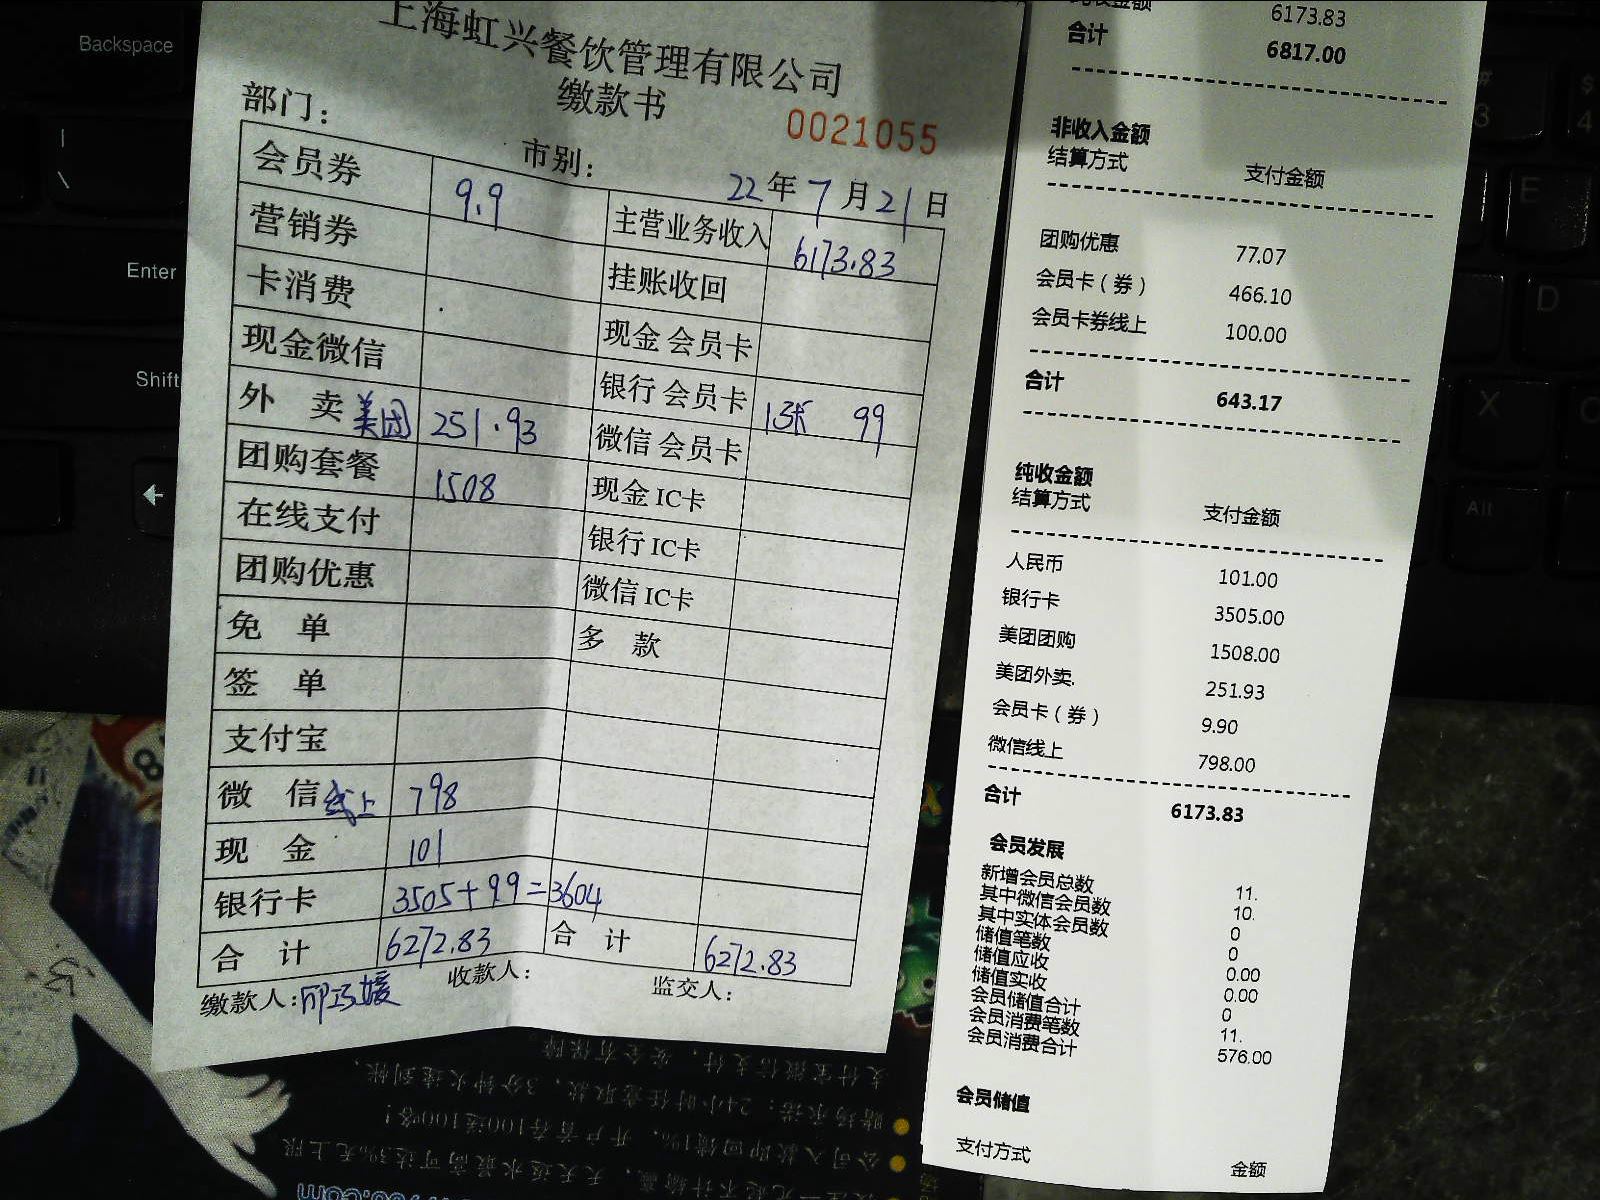 上海虹兴餐饮管理有限公司
缴款书
0021055
部门：
市别：
22年7月21日
会员券 9.9 主营业务收入 6173.83
营销券 挂账收回
卡消费 现金会员卡
现金微信 银行会员卡 1张 99
外卖美团 251.93 微信会员卡
团购套餐 1508 现金IC卡
在线支付 银行IC卡
团购优惠 微信IC卡
免单 多款
签单
支付宝
微信线上 798
现金 101
银行卡 3505+99=3604
合计 6272.83 合计 6272.83
缴款人: 收款人: 监交人:
6173.83
合计 6817.00
非收入金额
结算方式 支付金额
团购优惠 77.07
会员卡（券） 466.10
会员卡券线上 100.00
合计 643.17
纯收金额
结算方式 支付金额
人民币 101.00
银行卡 3505.00
美团团购 1508.00
美团外卖. 251.93
会员卡（券） 9.90
微信线上 798.00
合计 6173.83
会员发展
新增会员总数 11.
其中微信会员数 10.
其中实体会员数 0
储值笔数 0
储值应收 0.00
储值实收 0.00
会员储值合计 0
会员消费笔数 11.
会员消费合计 576.00
会员储值
支付方式 金额
Backspace
Enter
Shift
Alt
E
D
X
#
3
$
4
|
\